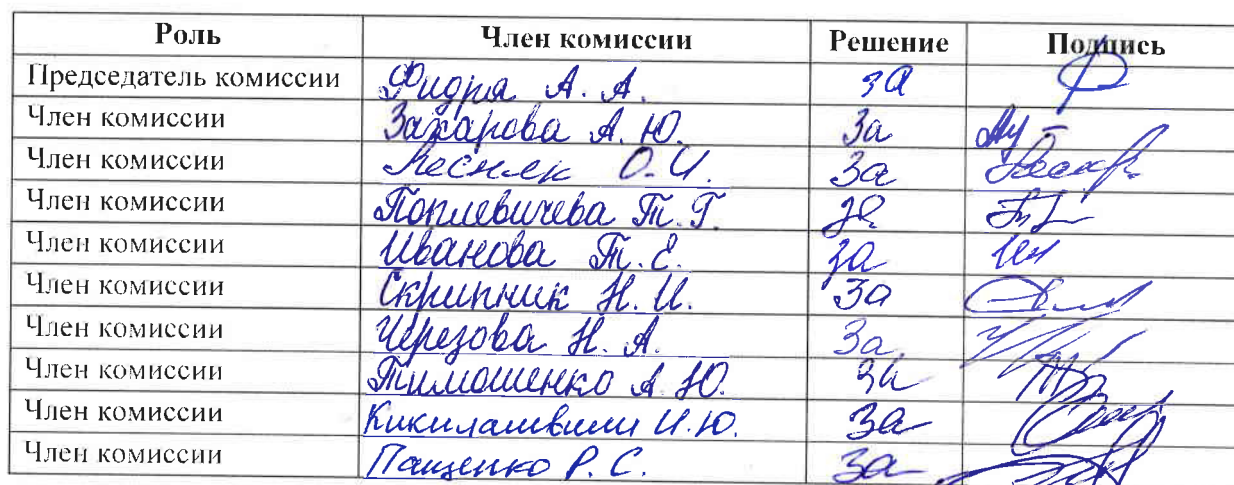 Роль Член комиссии Решение Подпись
Председатель комиссии Фидря А. А. за
Член комиссии Захарова А. Ю. За
Член комиссии Лесняк О. И. За
Член комиссии Поплевичева Т. Г. за
Член комиссии Иванова Т. Е. за
Член комиссии Скрипник Н. И. За
Член комиссии Черезова Н. А. За
Член комиссии Тимошенко А. Ю. За
Член комиссии Кикилашвили И. Ю. За
Член комиссии Пащенко Р. С. За